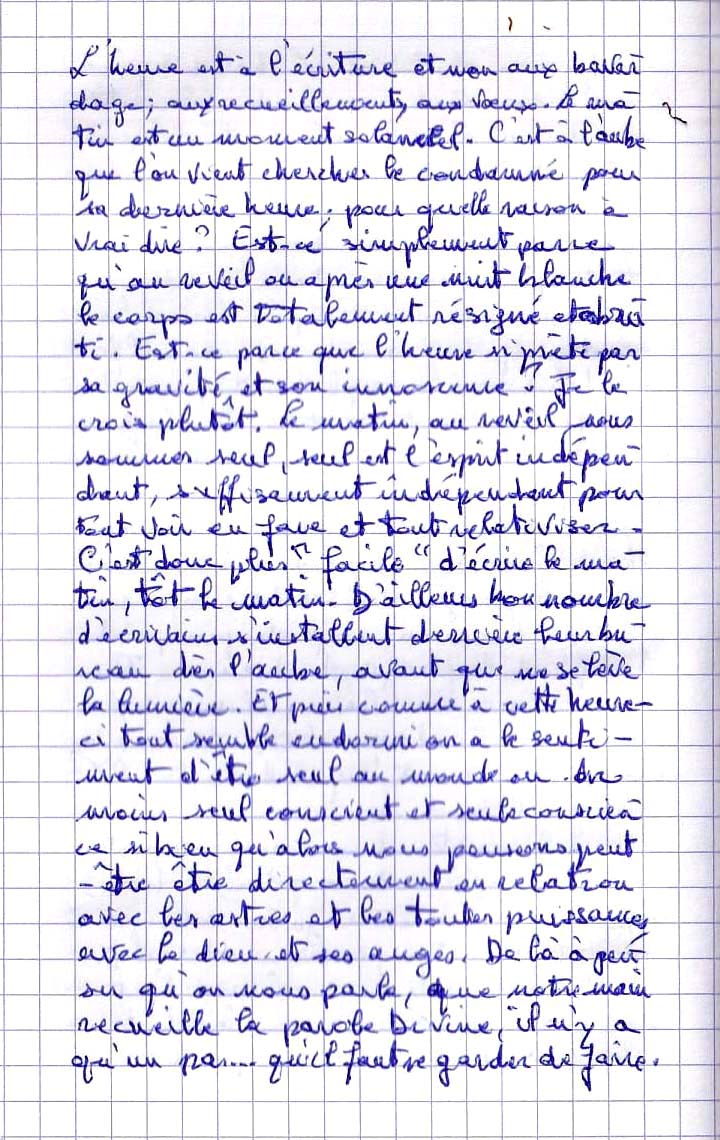 L'heure est à l'écriture et non aux bavar
dage ; aux recueillements, aux vœux. Le ma-
tin est un moment solannel. C'est à l'aube
que l'on vient chercher le condamné pour
sa dernière heure ; pour quelle raison à
vrai dire ? Est-ce simplement parce
qu'au reveil ou après une nuit blanche
le corps est totalement résigné et abru
ti. Est-ce parce que l'heure s'y prête par
sa gravité, et son innocence ? Je le
crois plutôt. Le matin, au reveil nous
sommes seul, seul est l'esprit indépen
dant, suffisamment indépendant pour
tout voir en face et tout relativiser.
C'est donc plus "facile" d'écrire le ma-
tin, tôt le matin. D'ailleurs bon nombre
d'écrivains s'installent derrière leur bu-
reau dès l'aube, avant que ne se lève
la lumière. Et puis comme à cette heure-
ci tout semble endormi on a le senti-
ment d'être seul au monde ou du
moins seul conscient et seule conscien
ce si bien qu'alors nous pensons peut
-être être directement en relation
avec les astres et les toutes puissances
avec le dieu et ses anges. De là à pen
ser qu'on nous parle, que notre main
recueille la parole Divine, il n'y a
qu'un pas... qu'il faut se garder de faire.